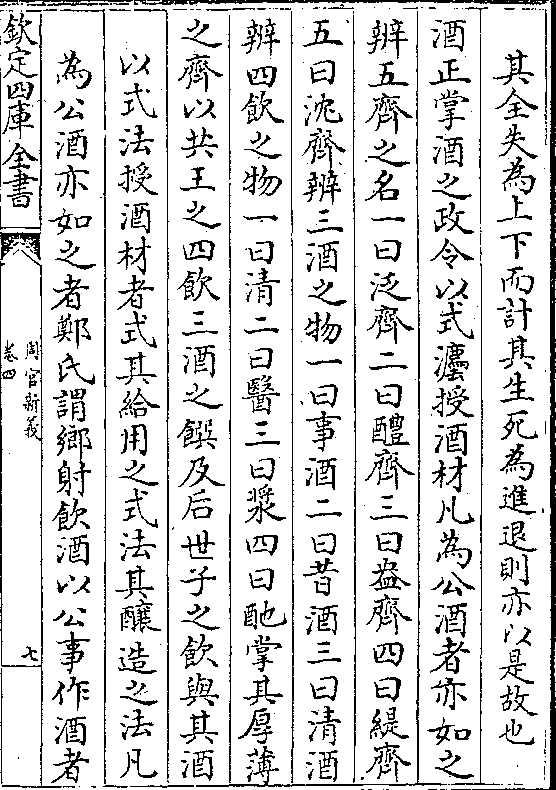 其全失為上下而計其生死為進退則亦以是故也
酒正掌酒之政令以式灋授酒材凡為公酒者亦如之
辨五齊之名一曰泛齊二曰醴齊三曰盎齊四曰緹齊
五曰沈齊辨三酒之物一曰事酒二曰昔酒三曰清酒
辨四飲之物一曰清二曰醫三曰漿四曰酏掌其厚薄
之齊以共王之四飲三酒之饌及后世子之飲與其酒
以式法授酒材者式其給用之式法其釀造之法凡
為公酒亦如之者鄭氏謂鄉射飲酒以公事作酒者
欽定四庫全書
周官新義
卷四
七